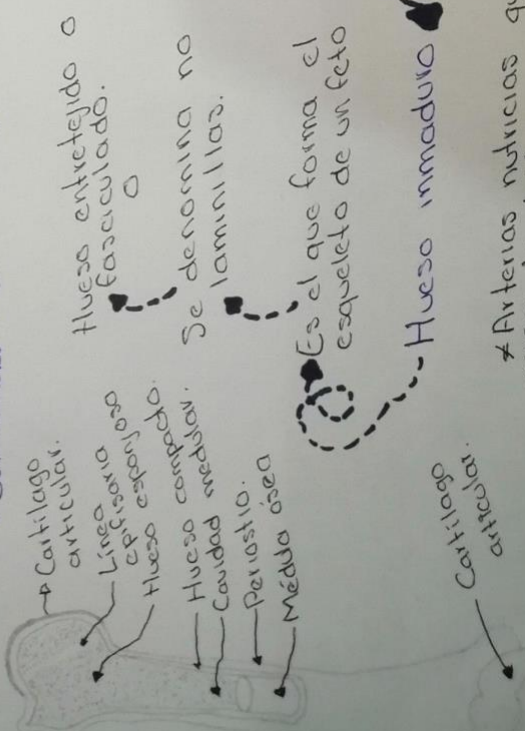 Cartílago
articular.
Línea
epifisaria
Hueso esponjoso
Hueso compacto.
Cavidad medular.
Periostio.
Médula ósea
Cartílago
articular.
Hueso entretejido o
fasciculado.
O
Se denomina no
laminillas.
Es el que forma el
esqueleto de un feto
Hueso inmaduro
* Arterias nutricias